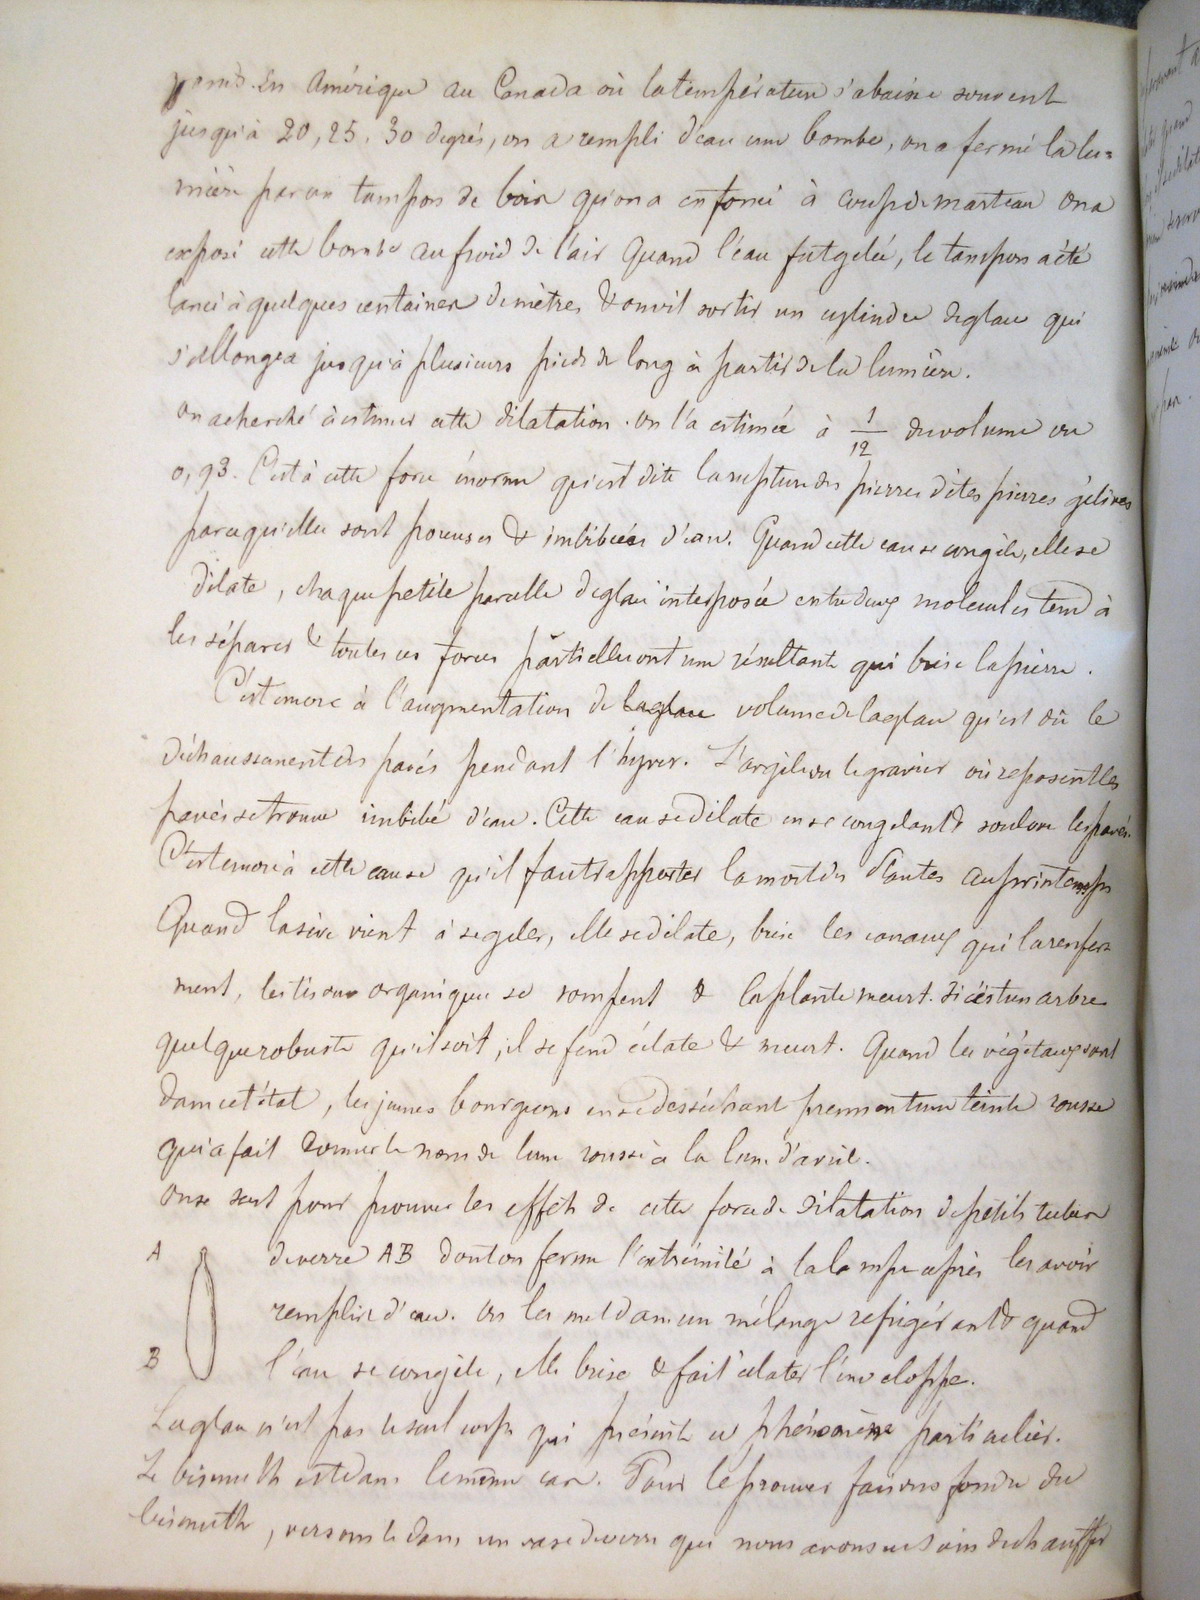 En Amérique au Canada où la température s'abaisse souvent
jusqu'à 20, 25, 30 degrés, on a rempli d'eau une bombe, on a fermé la lu=
mière par un tampon de bois qu'on a enfoncé à coups de marteau on a
exposé cette bombe au froid de l'air Quand l'eau fut gelée, le tampon a été
lancé à quelques centaines de mètres & on vit sortir un cylindre de glace qui
s'allongea jusqu'à plusieurs pieds de long à partir de la lumière.
on a cherché à estimer cette dilatation. on l'a estimée à 1/12 du volume ou
0,93. C'est à cette force énorme qu'est dûe la rupture des pierres dites pierres gélives
parce qu'elles sont poreuses & imbibées d'eau. Quand cette eau se congèle, elle se
dilate, chaque petite parcelle de glace interposée entre deux molécules tend à
les séparer & toutes ces forces partielles ont une résultante qui brise la pierre.
C'est encore à l'augmentation de la glace volume de la glace qu'est dû le
déchaussement des pavés pendant l'hyver. L'argile ou le gravier où reposent les
pavés se trouve imbibé d'eau. Cette eau se dilate en se congelant & soulève les pavés.
C'est encore à cette cause qu'il faut rapporter la mort des plantes au printemps
Quand la sève vient à se geler, elle se dilate, brise les canaux qui la renfer=
ment, les tissus organiques se rompent & la plante meurt. Si c'est un arbre
quelque robuste qu'il soit, il se fend éclate & meurt. Quand les végétaux sont
dans cet état, les jeunes bourgeons en se desséchant prennent une teinte rousse
qui a fait donner le nom de lune rousse à la lune d'avril.
on se sert pour prouver les effets de cette force de dilatation de petits tubes
A de verre AB dont on ferme l'extrémité à la lampe après les avoir
remplis d'eau. On les met dans un mélange réfrigérant & quand
B l'eau se congèle, elle brise & fait éclater l'enveloppe.
La glace n'est pas le seul corps qui présente ce phénomène particulier.
Le bismuth est dans le même cas. Pour le prouver faisons fondre du
bismuth, versons le dans un vase de verre que nous avons eu soin de chauffer